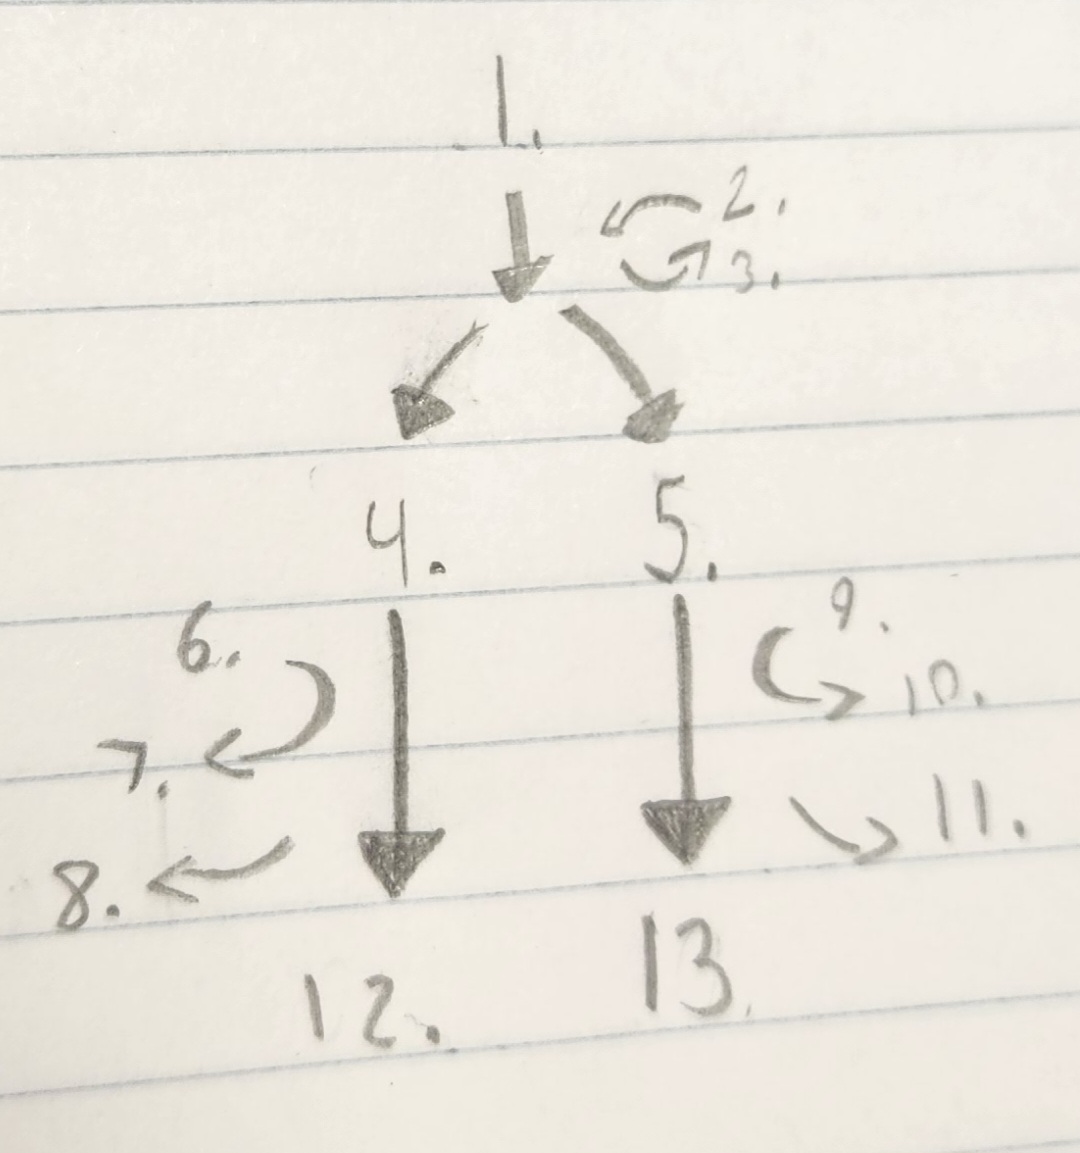 1.
2.
3.
4. 5.
6. 9.
7. 10.
8. 11.
12. 13.